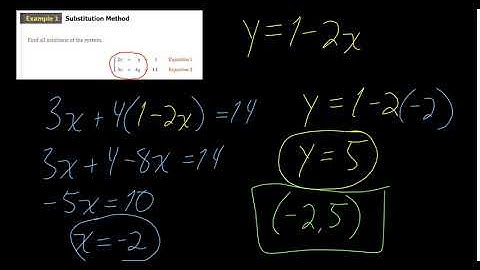 Example 1 Substitution Method
Find all solutions of the system.
2x + y = 1 Equation 1
3x + 4y = 14 Equation 2
y = 1 - 2x
3x + 4(1 - 2x) = 14
3x + 4 - 8x = 14
-5x = 10
x = -2
y = 1 - 2(-2)
y = 5
(-2, 5)